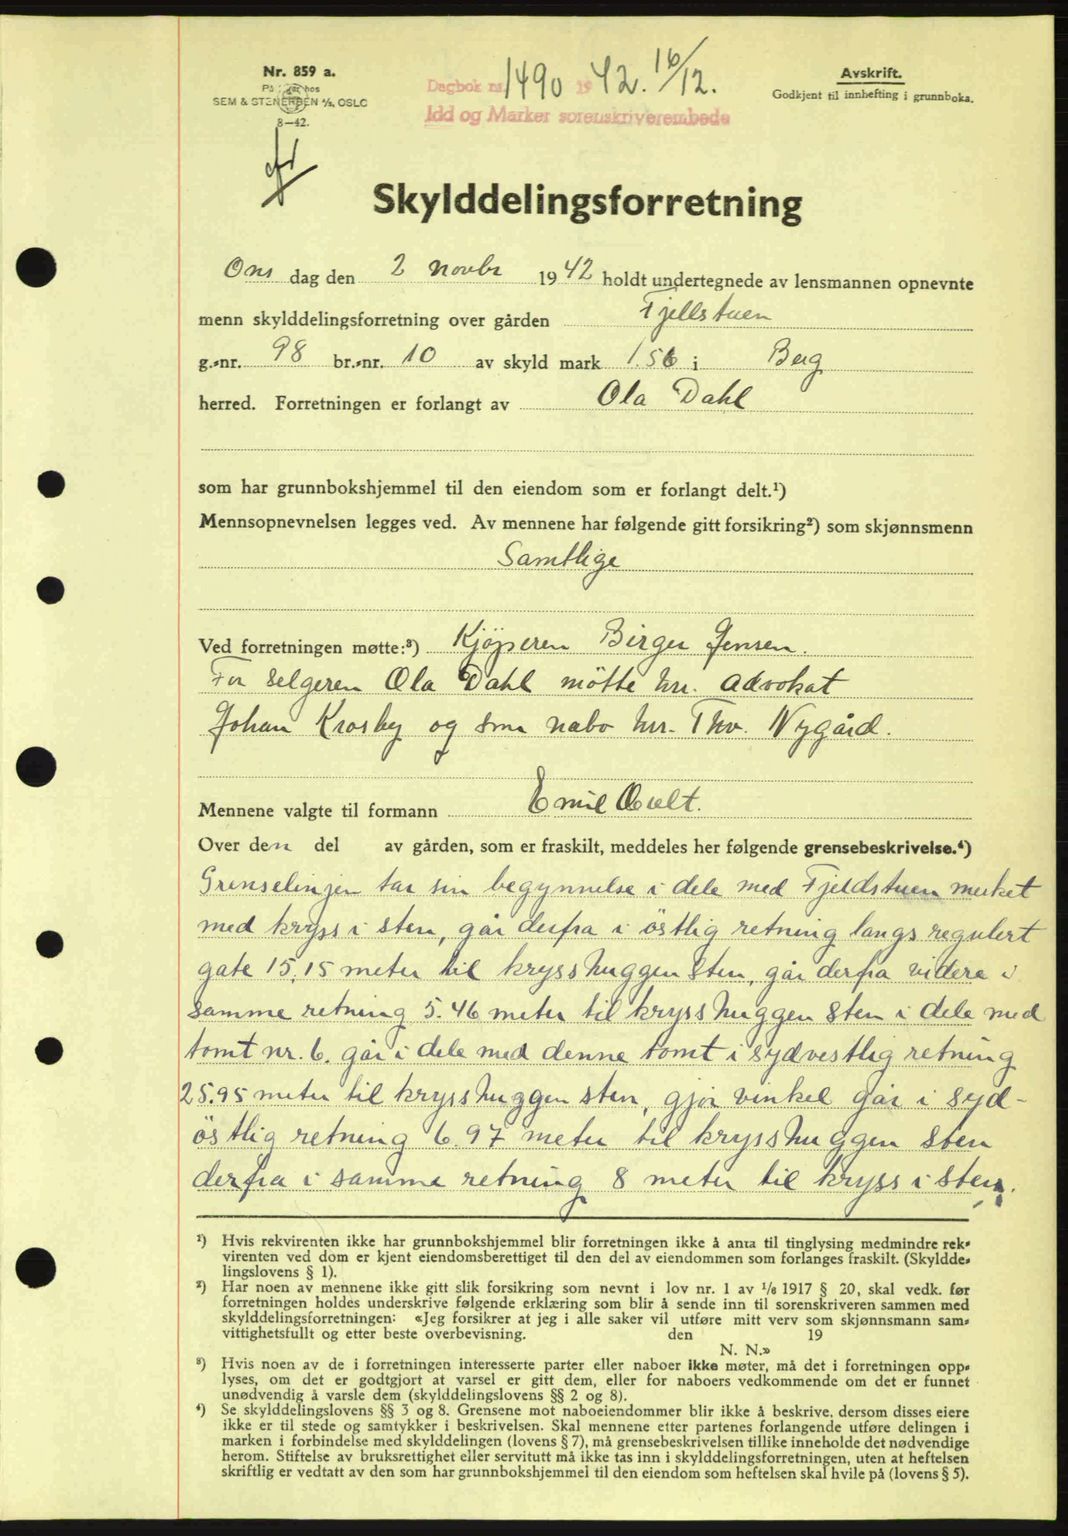 Nr. 859 a.
På lager hos
SEM & STENERSEN A/S, OSLO
8—42.
Dagbok nr. 1490 1942. 16/12.
Idd og Marker sorenskriverembede
Avskrift.
Godkjent til innhefting i grunnboka.
Skylddelingsforretning
Ons dag den 2 novbr 1942 holdt undertegnede av lensmannen opnevnte
menn skylddelingsforretning over gården Fjellstuen
g.-nr. 98 br.-nr. 10 av skyld mark 1.56 i Berg
herred. Forretningen er forlangt av Ola Dahl
som har grunnbokshjemmel til den eiendom som er forlangt delt.¹)
Mennsopnevnelsen legges ved. Av mennene har følgende gitt forsikring²) som skjønnsmenn
Samtlige
Ved forretningen møtte:³) Kjöperen Birger Jensen.
For selgeren Ola Dahl mötte hr. advokat
Johan Krosby og som nabo hr. Thv. Nygård.
Mennene valgte til formann Emil
Over den del av gården, som er fraskilt, meddeles her følgende grensebeskrivelse.⁴)
Grenselinjen tar sin begynnelse i dele med Fjeldstuen merket
med kryss i sten, går derfra i östlig retning langs regulert
gate 15,15 meter til krysshuggen sten, går derfra videre i
samme retning 5.46 meter til krysshuggen sten i dele med
tomt nr. 6. går i dele med denne tomt i sydvestlig retning
25.95 meter til krysshuggen sten, gjör vinkel går i syd-
östlig retning 6.97 meter til krysshuggen sten
derfra i samme retning 8 meter til kryss i sten.
¹) Hvis rekvirenten ikke har grunnbokshjemmel blir forretningen ikke å anta til tinglysing medmindre rek-
virenten ved dom er kjent eiendomsberettiget til den del av eiendommen som forlanges fraskilt. (Skyldde-
lingslovens § 1).
²) Har noen av mennene ikke gitt slik forsikring som nevnt i lov nr. 1 av 1/6 1917 § 20, skal vedk. før
forretningen holdes underskrive følgende erklæring som blir å sende inn til sorenskriveren sammen med
skylddelingsforretningen: «Jeg forsikrer at jeg i alle saker vil utføre mitt verv som skjønnsmann sam-
vittighetsfullt og etter beste overbevisning. den 19
N. N.»
³) Hvis noen av de i forretningen interesserte parter eller naboer ikke møter, må det i forretningen opp-
lyses, om det er godtgjort at varsel er gitt dem, eller for naboers vedkommende om det er funnet
unødvendig å varsle dem (skylddelingslovens §§ 2 og 8).
⁴) Se skylddelingslovens §§ 3 og 8. Grensene mot naboeiendommer blir ikke å beskrive, dersom disses eiere
ikke er til stede og samtykker i beskrivelsen. Skal mennene etter partenes forlangende utføre delingen i
marken i forbindelse med skylddelingen (lovens § 7), må grensebeskrivelsen tillike inneholde det nødvendige
herom. Stiftelse av bruksrettighet eller servitutt må ikke tas inn i skylddelingsforretningen, uten at heftelsen
skriftlig er vedtatt av den som har grunnbokshjemmel til den eiendom som heftelsen skal hvile på (lovens § 5).